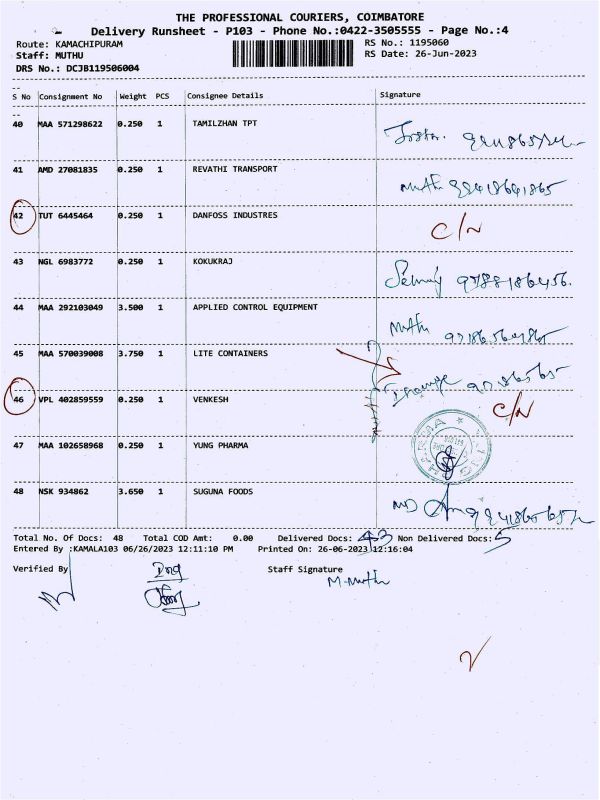 THE PROFESSIONAL COURIERS, COIMBATORE
Delivery Runsheet - P103 - Phone No.:0422-3505555 - Page No.:4
Route: KAMACHIPURAM
RS No.: 1195060
Staff: MUTHU
RS Date: 26-Jun-2023
DRS No.: DCJB119506004
S No Consignment No Weight PCS Consignee Details Signature
40 MAA 571298622 0.250 1 TAMILZHAN TPT
41 AMD 27081835 0.250 1 REVATHI TRANSPORT
Muthu
42 TUT 6445464 0.250 1 DANFOSS INDUSTRES
C/N
43 NGL 6983772 0.250 1 KOKUKRAJ
9788186456.
44 MAA 292103049 3.500 1 APPLIED CONTROL EQUIPMENT
Muthu
45 MAA 570039008 3.750 1 LITE CONTAINERS
46 VPL 402859559 0.250 1 VENKESH
C/N
47 MAA 102658968 0.250 1 YUNG PHARMA
48 NSK 934862 3.650 1 SUGUNA FOODS
Total No. Of Docs: 48 Total COD Amt: 0.00 Delivered Docs: 43 Non Delivered Docs: 5
Entered By :KAMALA103 06/26/2023 12:11:10 PM Printed On: 26-06-2023 12:16:04
Verified By Staff Signature
M. Muthu